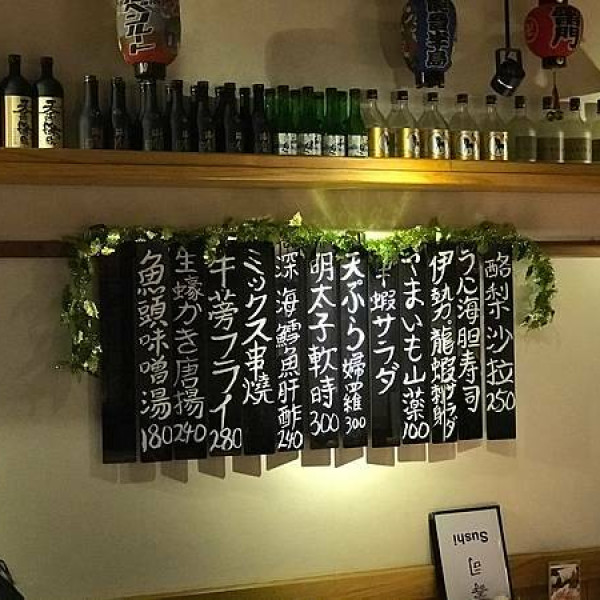 酪梨沙拉 250
うに海胆寿司
伊勢龍蝦サラダ刺身
やまいも山薬 100
牛蝦サラダ
天ぷら婦羅 300
明太子軟時 300
深海鱈魚肝酢 240
ミックス串燒
牛蒡フライ 280
生蠔かき唐揚 240
魚頭味噌湯 180
Sushi
司